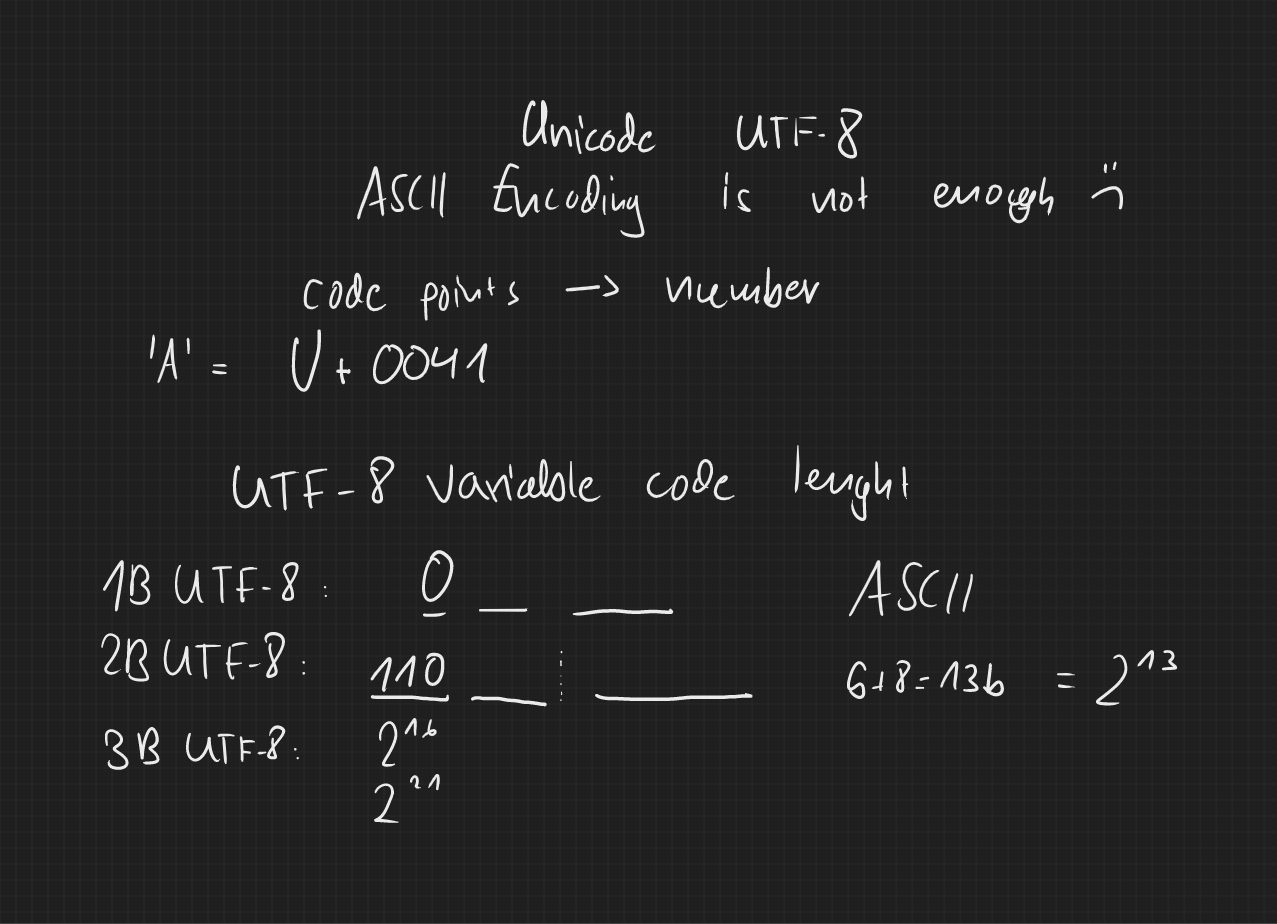 Unicode UTF-8
ASCII Encoding is not enough :(
code points -> number
'A' = U+0041
UTF-8 variable code lenght
1B UTF-8: 0 _ _ ASCII
2B UTF-8: 110 _ _ 6+8=13b = 2^13
3B UTF-8: 2^16
2^21